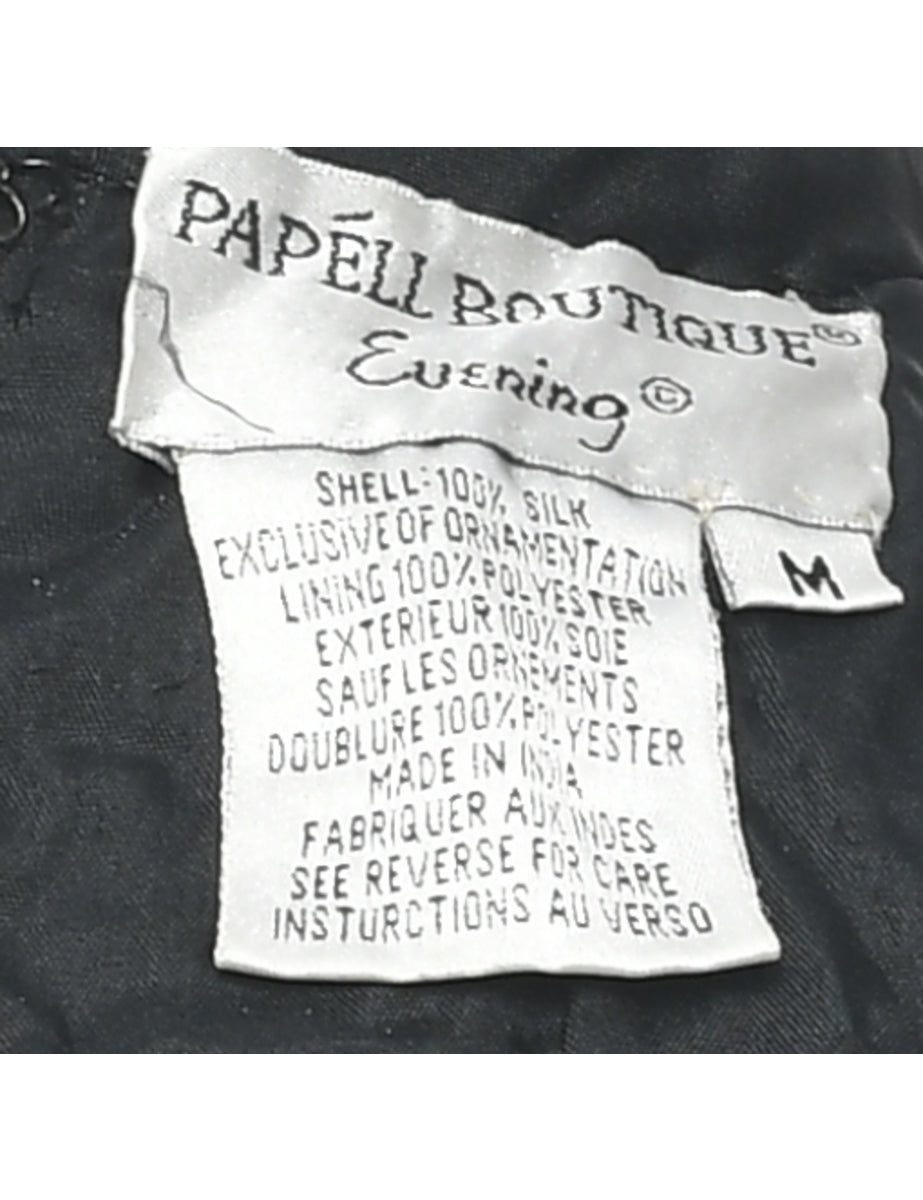 PAPÉLL BOUTIQUE
Evening ©
M
SHELL: 100% SILK
EXCLUSIVE OF ORNAMENTATION
LINING 100% POLYESTER
EXTERIEUR 100% SOIE
SAUF LES ORNEMENTS
DOUBLURE 100% POLYESTER
MADE IN INDIA
FABRIQUER AUX INDES
SEE REVERSE FOR CARE
INSTURCTIONS AU VERSO